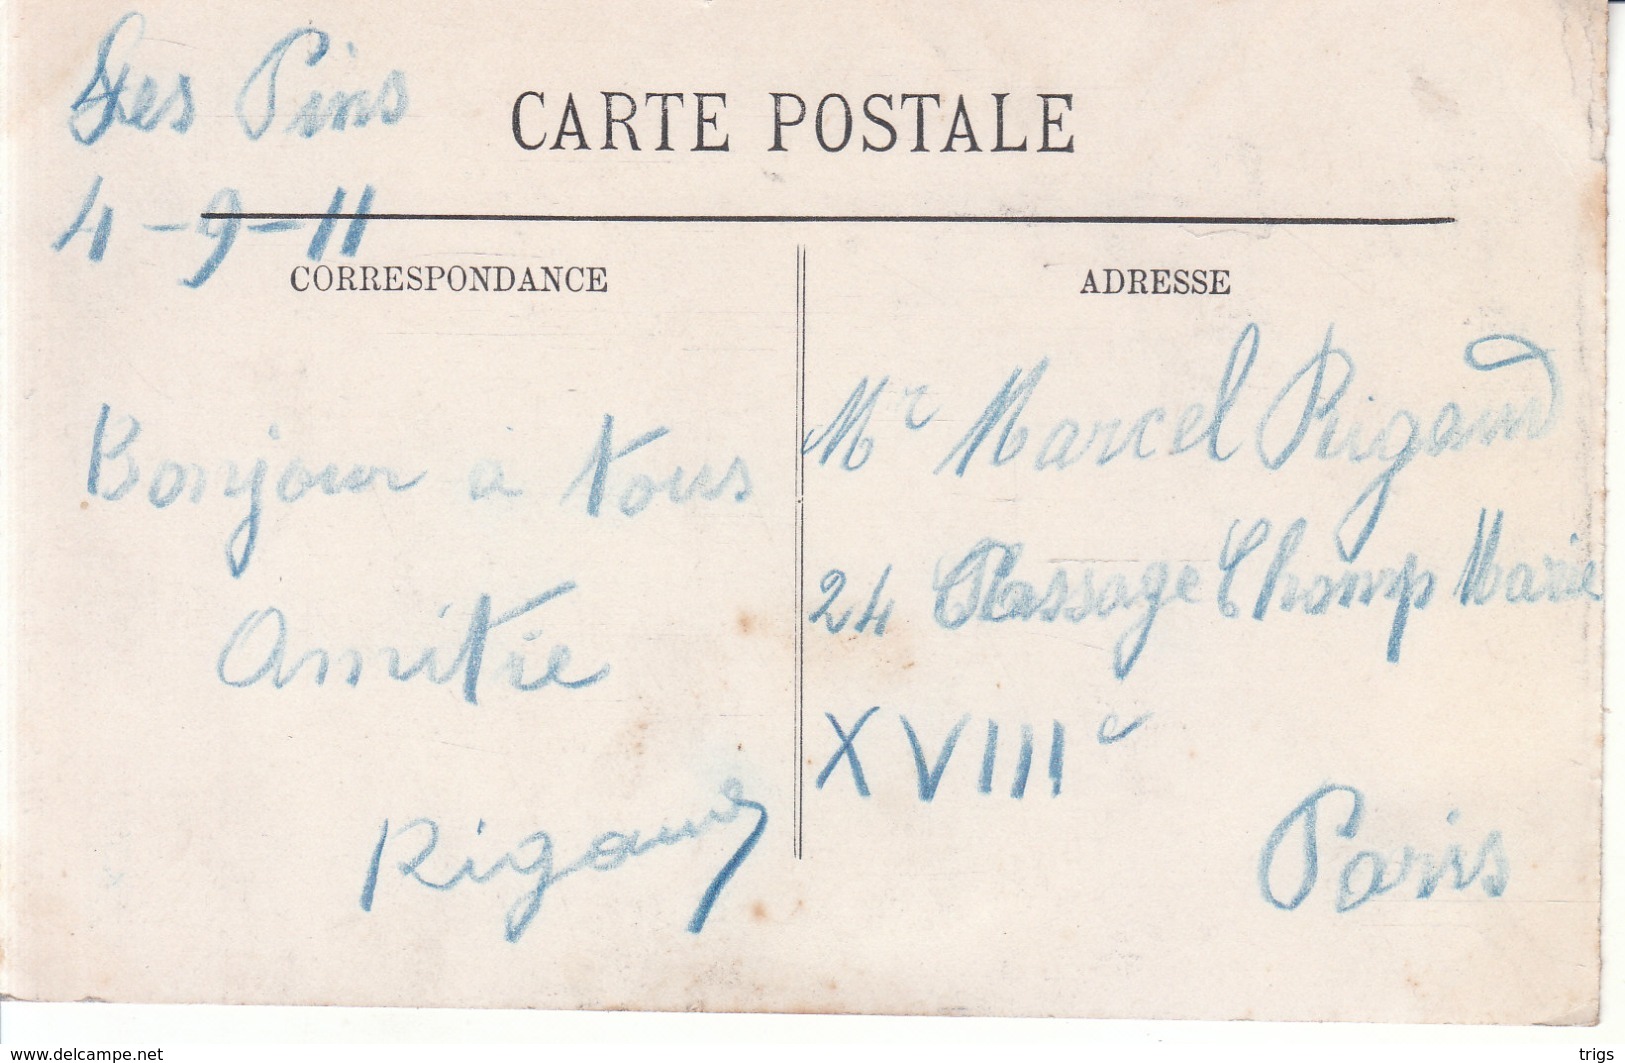 Les Pins
CARTE POSTALE
4-9-11
CORRESPONDANCE
ADRESSE
Bonjour a tous
Amitie
Rigaud
Mr Marcel Rigaud
24 Passage Champ Marie
XVIIIe
Paris
www.delcampe.net
trigs